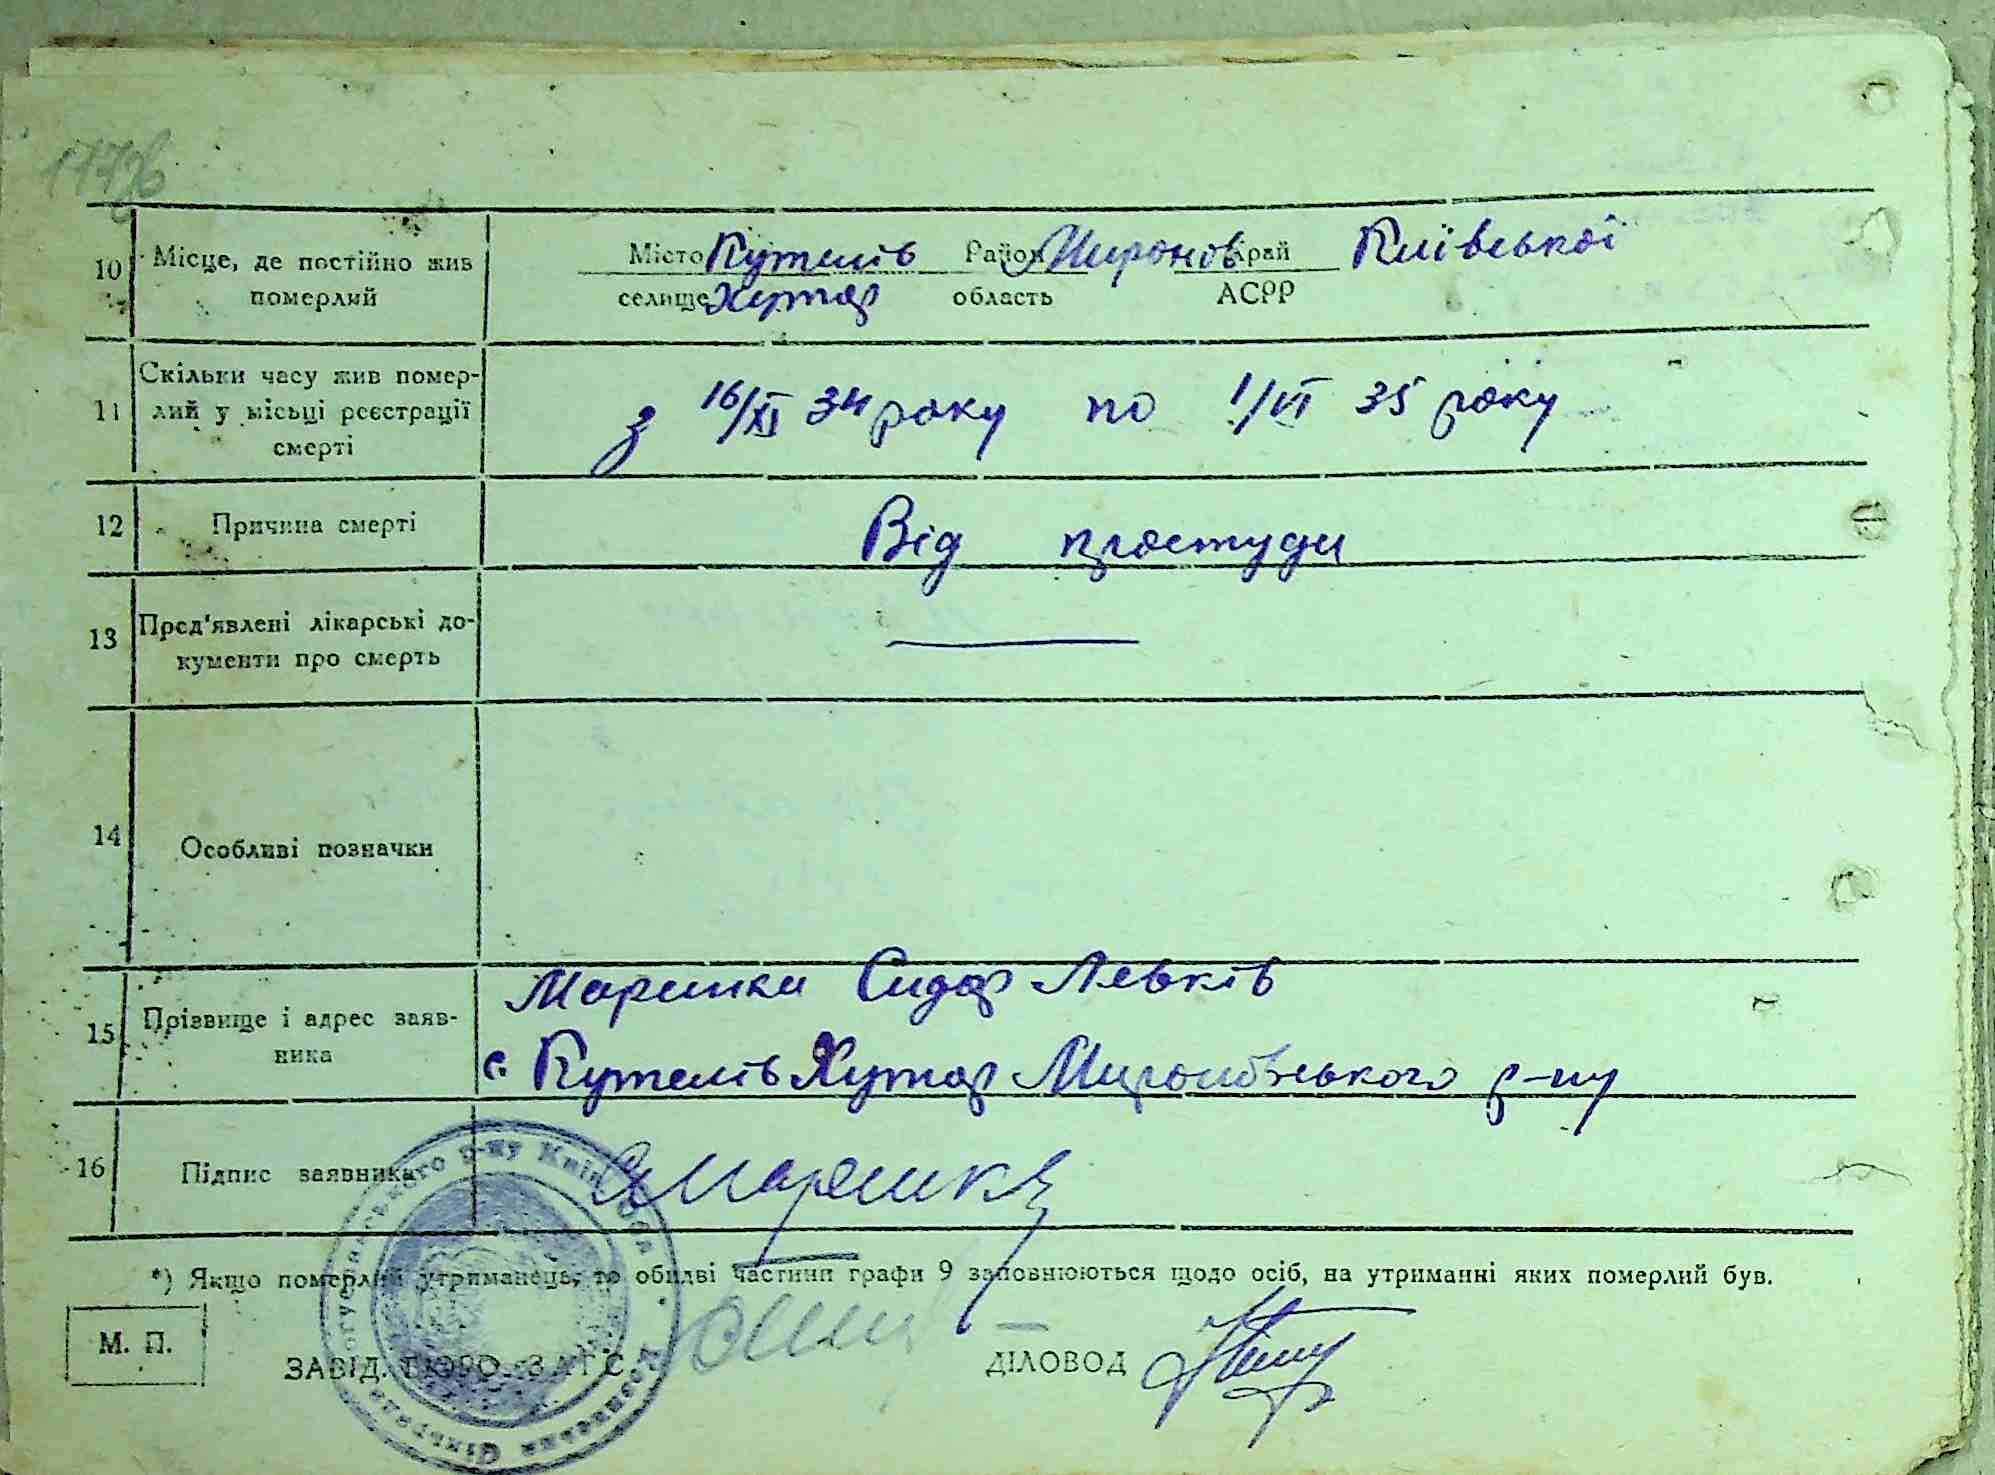 10 Місце, де постійно жив Місто Кутелів Район Миронов Край Київської
померлий селище Хутор область АСРР
Скільки часу жив помер-
11 лий у місьці реєстрації з 16/XI 34 року по 1/VI 35 року
смерті
12 Причина смерті Від простуди
13 Пред'явлені лікарські до-
кументи про смерть
14 Особливі позначки
Маринки Сидор Левків
15 Прізвище і адрес заяв-
ника с. Кутелів Хутор Миронівського р-ну
16 Підпис заявника
*) Якщо померлий утриманець, то обидві частини графи 9 заповнюються щодо осіб, на утриманні яких померлий був.
М. П.
ЗАВІД. БЮРО ЗАГС ДІЛОВОД